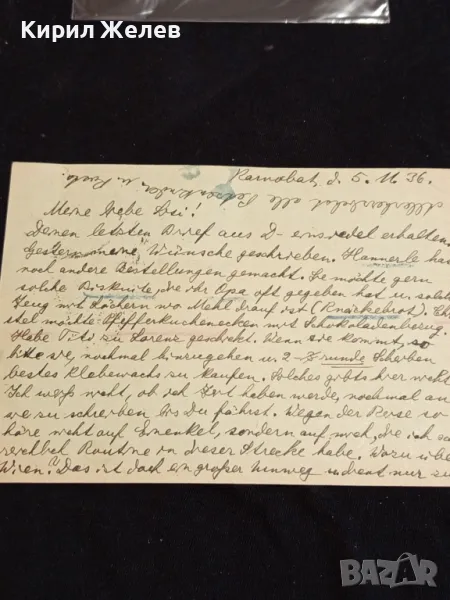 Кирил Желев
Karnobat, d. 5. 11. 36.
Allerherzlichst alle
Meine liebe
Deinen letzten Brief aus D-einsiedel erhalten.
Gestern meine Wünsche geschrieben. Hannerle hat
noch andere Bestellungen gemacht. Sie möchte gern
solche Biskuite, die ihr Opa oft gegeben hat u. solch
Zeug mit Löchern wo Mehl drauf ist (Knäckebrot). Ch
möchte Pfefferkuchenecken mit Schokoladenbezug.
Habe Titi zu Lorenz geschickt. Wenn sie kommt, so
bitte sie, nochmal hinzugehen u. 2 runde Scheiben
bestes Klebewachs zu kaufen. Solches gibts hier nicht.
Ich weiß nicht, ob ich Zeit haben werde, nochmal an
zu schreiben bis Du fährst. Wegen der Reise so
höre nicht auf Enenkel, sondern auf mich, die ich doch
reichlich Routine in dieser Strecke habe. Wozu über
Wien? Das ist doch ein großer Umweg u. dient nur zu
BAZAR.BG